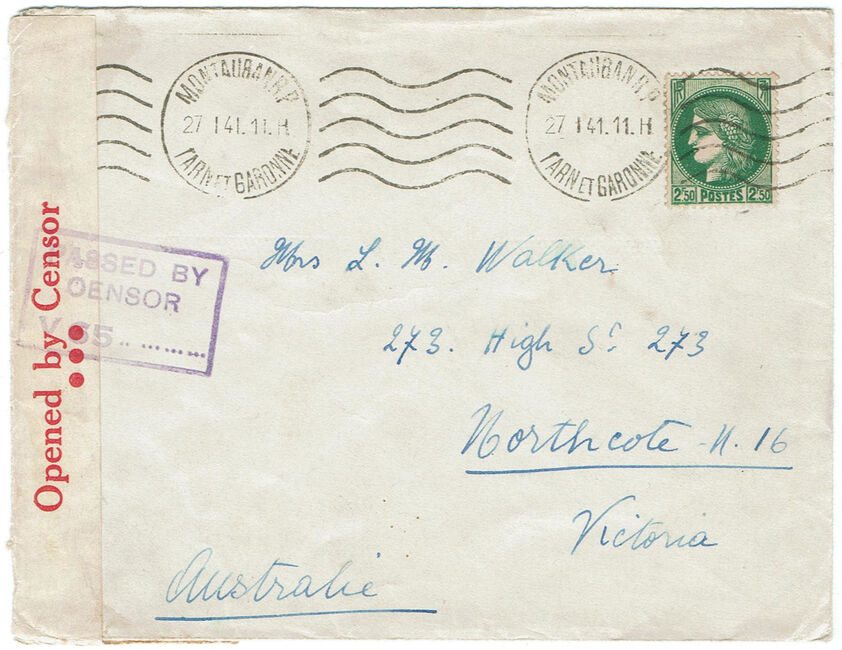 MONTAUBAN RP
27 1 41. 11. H
TARN ET GARONNE
MONTAUBAN RP
27 1 41. 11. H
TARN ET GARONNE
2F50 POSTES 2F50
Opened by Censor
PASSED BY
CENSOR
V.65.. ........
Mrs L. M. Walker
273. High St 273
Northcote - N. 16
Victoria
Australie